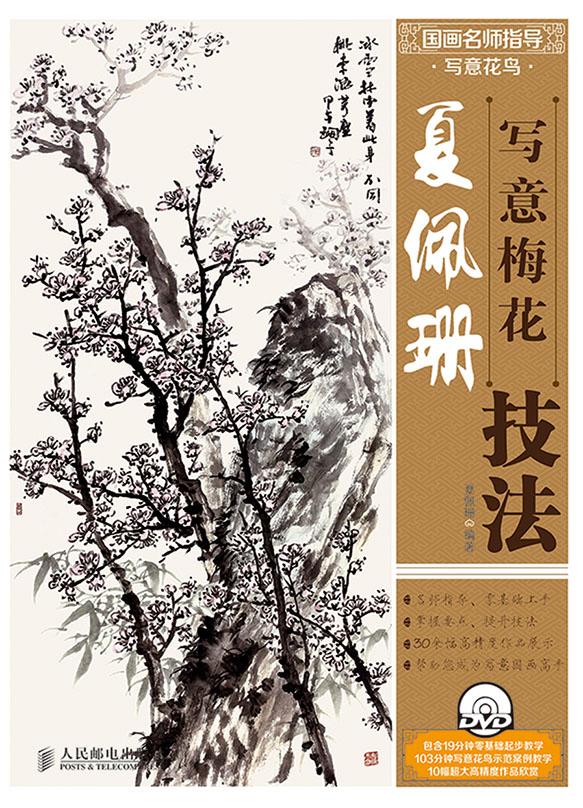 国画名师指导
·写意花鸟·
夏佩珊
写意梅花
技法
夏佩珊 编著
名师指导、零基础上手
掌握要点、提升技法
30余幅高精度作品展示
帮助您成为写意国画高手
DVD
包含19分钟零基础起步教学
103分钟写意花鸟示范案例教学
10幅超大高精度作品欣赏
冰雪林中著此身 不同
桃李混芳尘
人民邮电出
POSTS & TELECOM